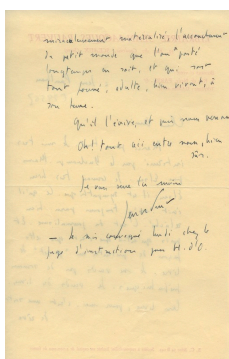 miraculeusement matérialisé, l'accouchement
du petit monde que l'on a porté
longtemps en soi, et qui sort
tout formé, adulte, bien vivant, à
son heure.
Qu'il l'écrive, et puis nous verrons
Oh! tout, ici, entre nous, bien
sûr.
Je vous serre la main
— Je suis convoqué lundi chez le
juge d'instruction pour H. d'O.